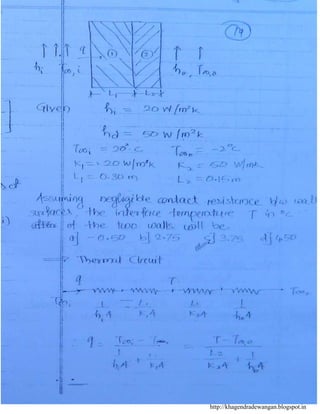 (19)
① ②
hi T∞,i q ho, T∞,o
L1 L2
Given hi = 20 W/m²k
ho = 50 W/m²k
T∞i = 20°c T∞o = -2°c
K1 = 20 W/m°k K2 = 50 W/m°k
L1 = 0.30 m L2 = 0.15 m
Assuming negligible contact resistance b/w wall
surfaces, the interface temperature T in °c
of the two walls will be.
a] -0.50 b] 2.75 c] 3.75 d] 4.50
⇒ Thermal Circuit
q T
T∞i T∞o
1/hiA L1/K1A L2/K2A 1/hoA
∴ q = T∞i - T∞o / 1/hiA + L1/K1A = T - T∞,o / L2/K2A + 1/hoA
http://khagendradewangan.blogspot.in